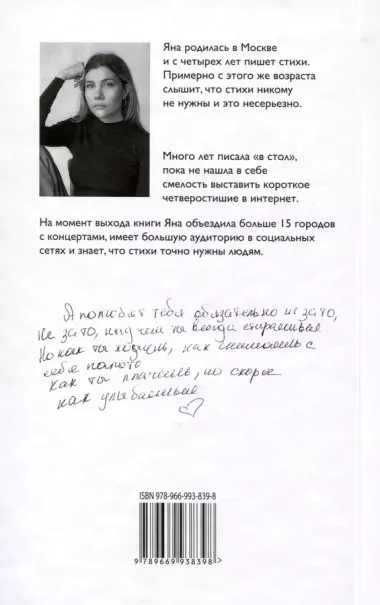 Яна родилась в Москве
и с четырех лет пишет стихи.
Примерно с этого же возраста
слышит, что стихи никому
не нужны и это несерьезно.
Много лет писала «в стол»,
пока не нашла в себе
смелость выставить короткое
четверостишие в интернет.
На момент выхода книги Яна объездила больше 15 городов
с концертами, имеет большую аудиторию в социальных
сетях и знает, что стихи точно нужны людям.
А полюбят тебя обязательно не за то,
Не за то, ты всегда стараешься
Но как ты ходишь, как снимаешь с
себя пальто
как ты плачешь, но скорее
как улыбаешься
ISBN 978-966-993-839-8
9 789669 938398